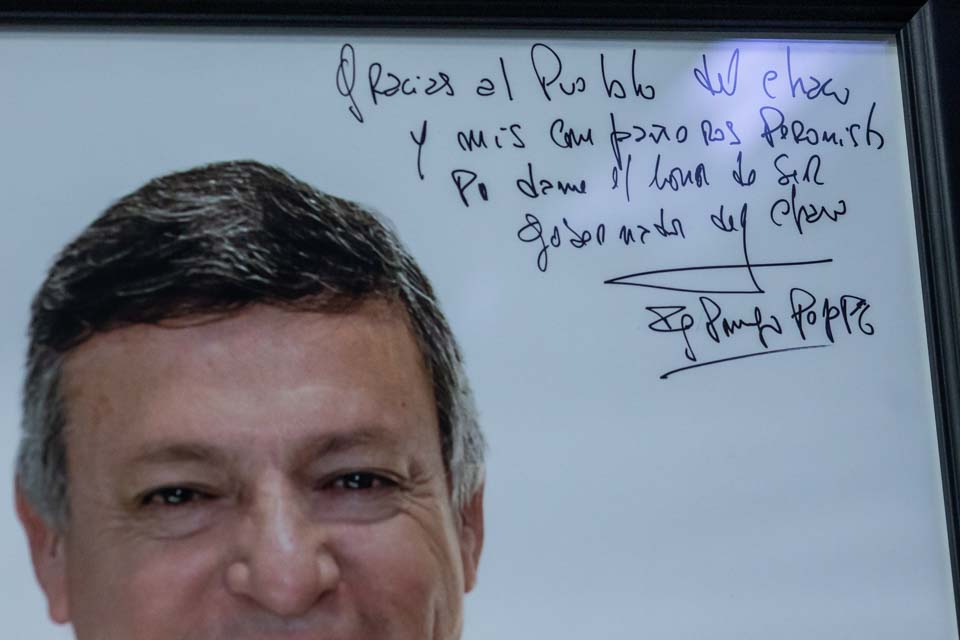 Gracias al Pueblo del chaco
y mis compañeros Peronista
Po darme el honor de SER
gobernador del chaco
Ing Domingo Peppo